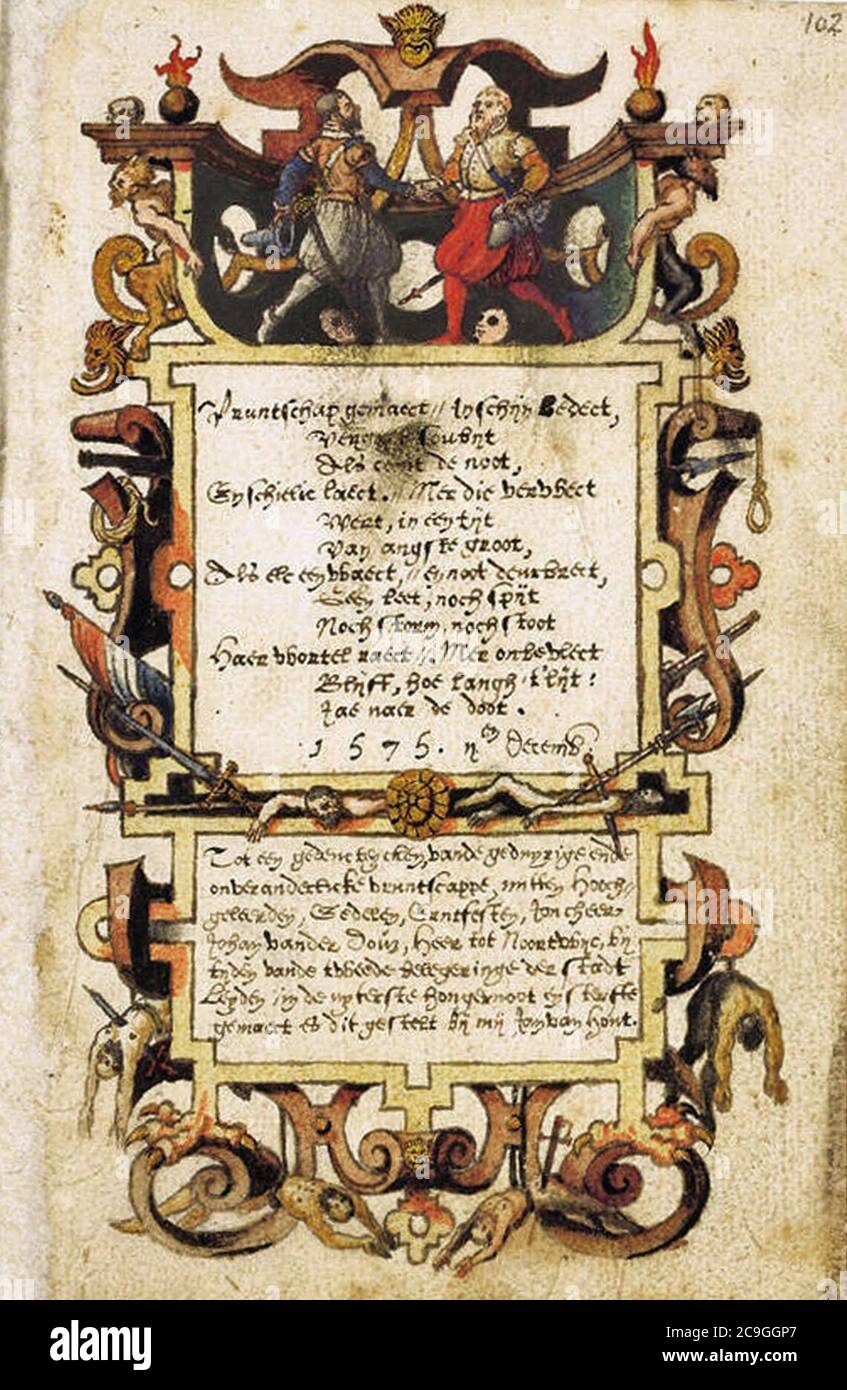 102
Vruntschap gemaect // In schijn Bedect,
soubijt
Als de noot,
En schielic laect. // Mer die verwect
Wert, in een tijt
Van angste groot,
Als elc een waect, // en noot deurbrect,
Geen leet, noch spijt
Noch storm, noch stoot
Haer wortel raect // Mer onbevlect
Blijft, hoe langh t'lijt:
Jae naer de doot.
1575. Decemb.
Tot een gedencteycken, vande geduyrige ende
onveranderlicke vruntscappe, mitten Hooch-
geleerden, Edelen, Erntfesten, Joncheer
Johan vander Does, Heer tot Noortwijc, bij
tijden vande tweede belegeringe der stadt
Leyden, in de uyterste hongernoot en sterfte
gemaect es dit gestelt bij mij Jan van Hout.
alamy
Image ID: 2C9GGP7
www.alamy.com